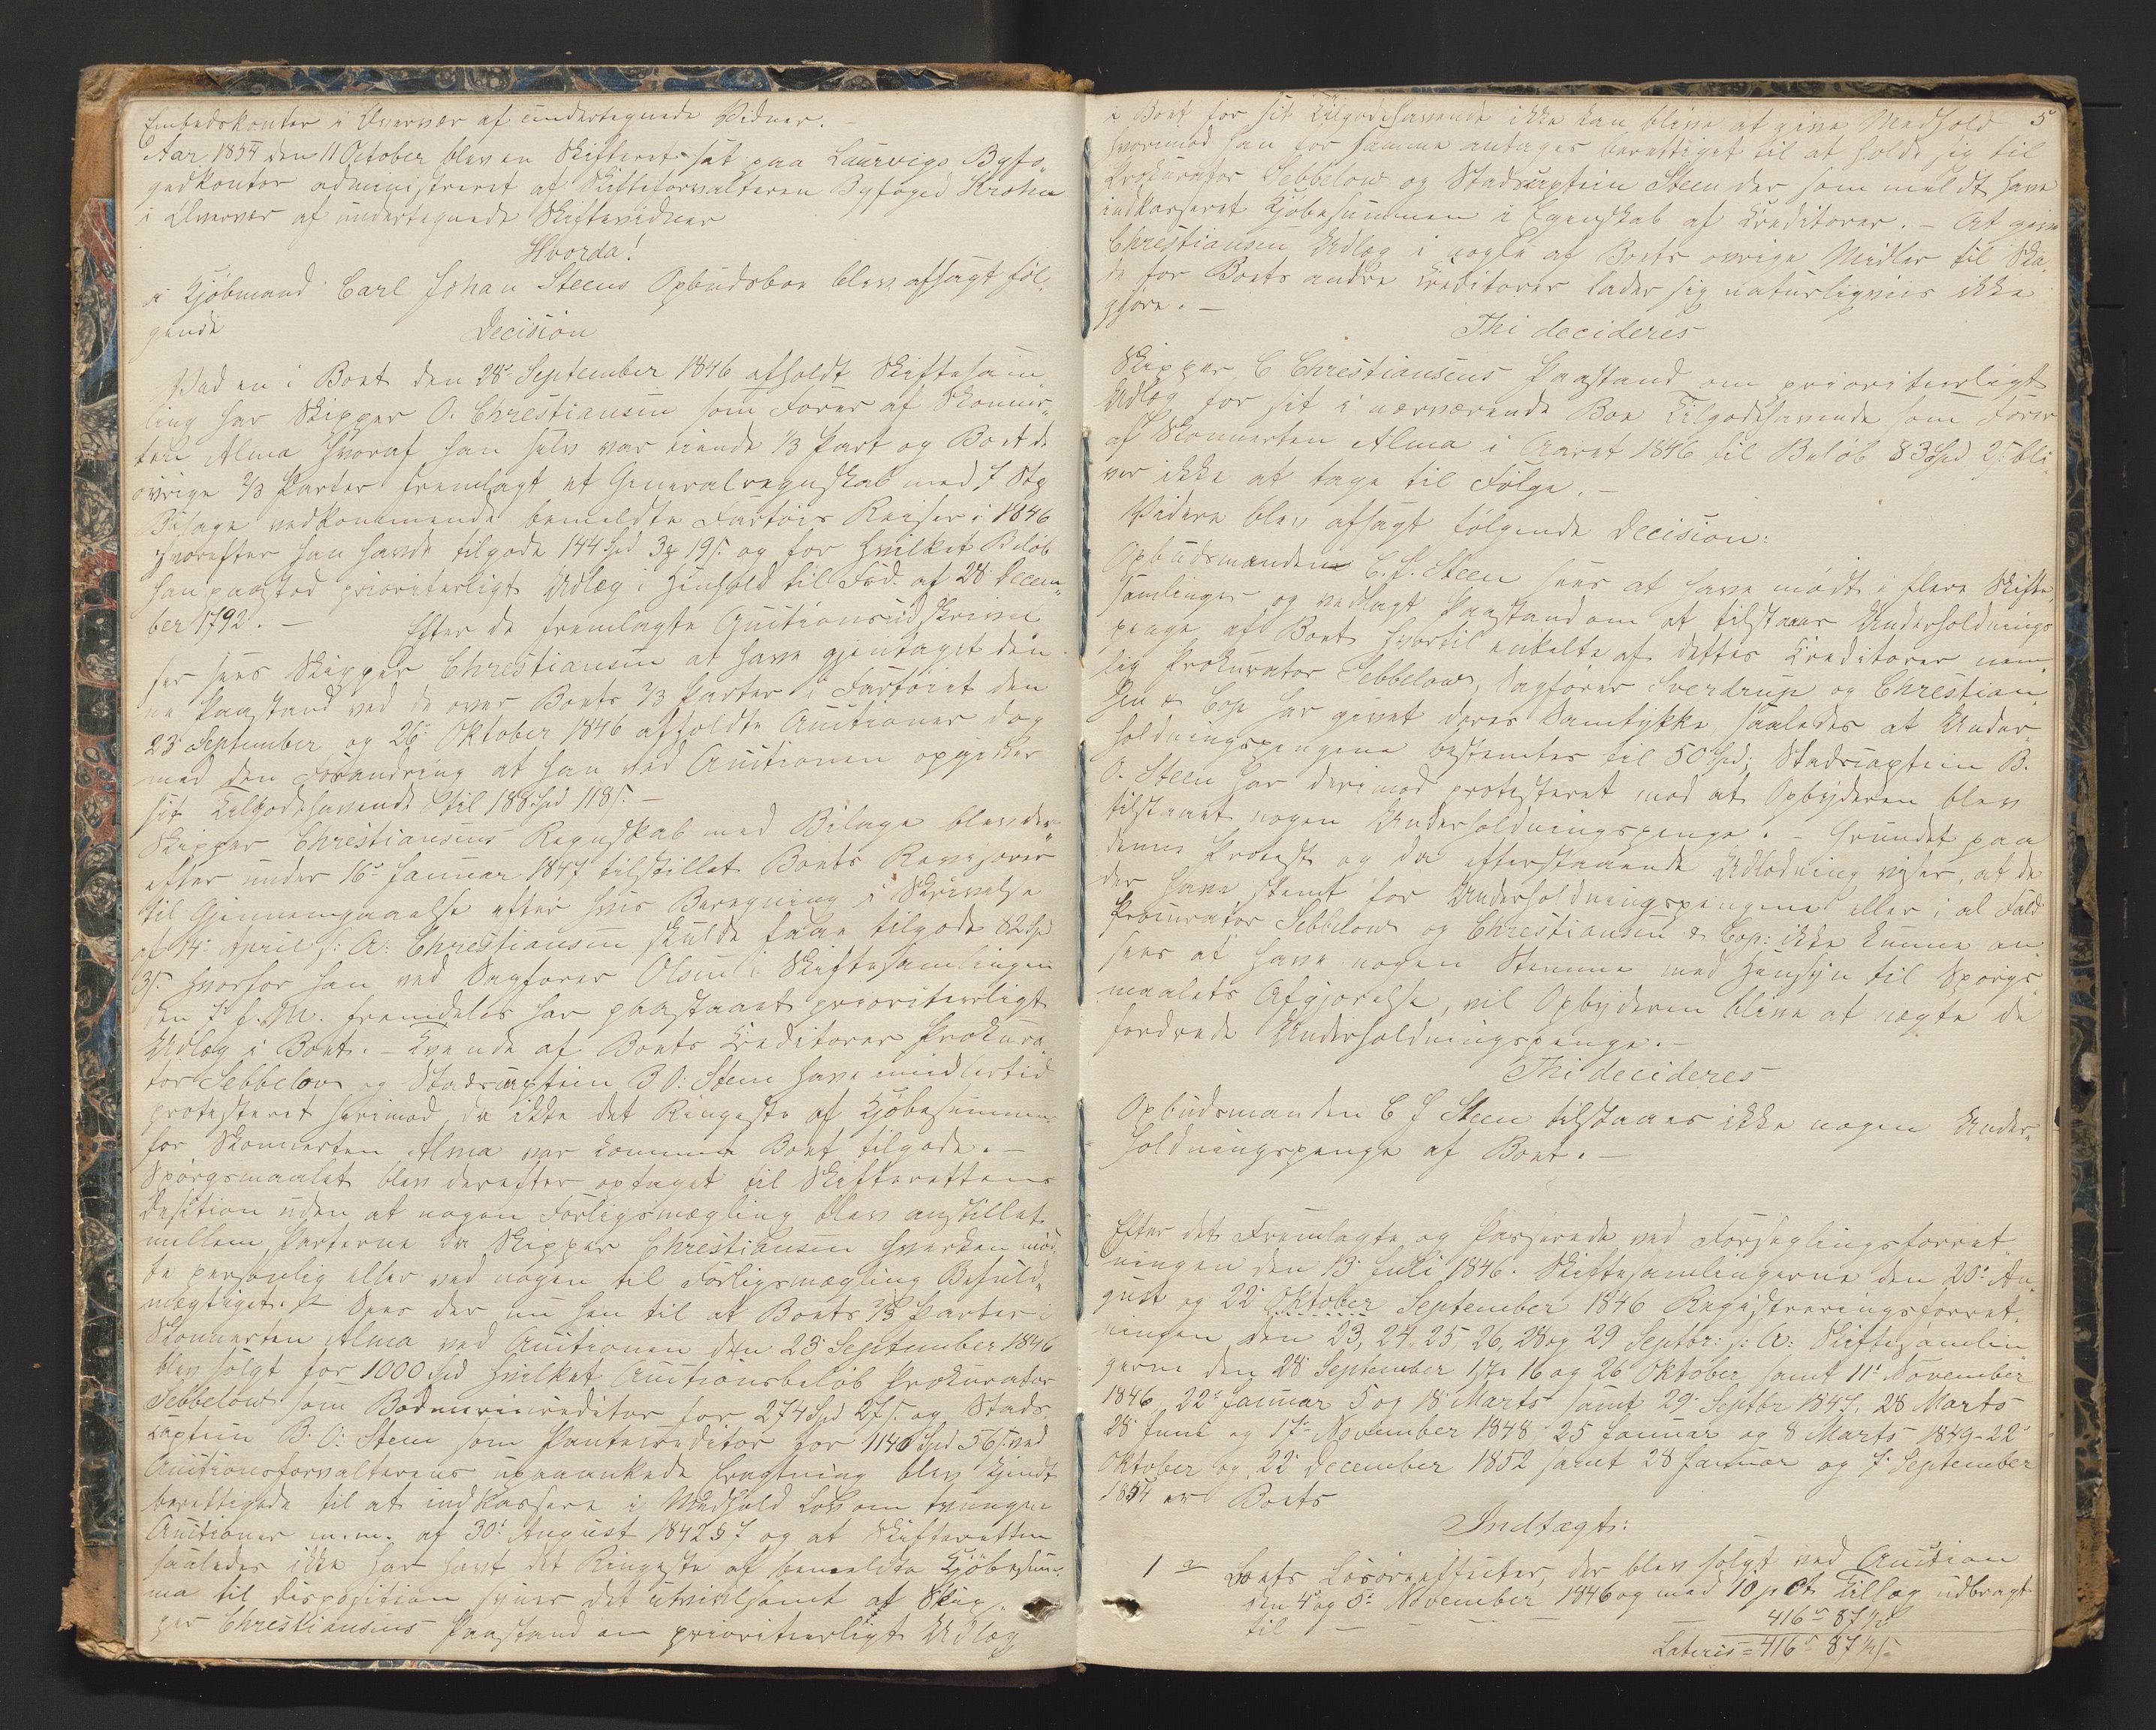 Embedskontor i Overvær af undertegnede Vidner. —
Aar 1854 den 11 October blev en Skifteret sat paa Laurvigs Byfo„
gedkontor administreret af Skifteforvalteren Byfoged Krohn
i Overvær af undertegnede Skiftevidner
Hvorda!
i Kjöbmand Carl Johan Steens Opbudsboe blev afsagt föl„
gende
Decision
Ved en i Boet den 28de September 1846 afholdt Skiftesam„
ling har Skipper O. Christiansen som Förer af Skonner„
ten Alma hvoraf han selv var eiende 1/3 Part og Boet de
övrige 2/3 Parter fremlagt et Generalregnskab med 7 Stk
Bilage vedkommende bemeldte Fartöis Reiser i 1846
hvorefter han havde tilgode 144 Spd 3 19 s. og for hvilket Belöb
han paastod prioriterligt Udlæg i Henhold til Fod. af 28 Decem„
ber 1792. — Efter de fremlagte Auctionsudskrivel
ser sees Skipper Christiansen at have gjentaget den„
ne Paastand ved de over Boets 2/3 Parter i Fartöiet den
23 September og 26de Oktober 1846 afholdte Auctioner dog
med den Forandring at han ved Auctionen opgiver
sit Tilgodehavende til 188 Spd 118 s. —
Skipper Christiansens Regnskab med Bilage blev der„
efter under 16de Januar 1847 tilstillet Boets Revisorer
til Gjennemgaaelse efter hvis Beregning i Skrivelse
af 14de April s: A: Christiansen skulde have tilgode 82 Spd
3 s. hvorfor han ved Sagförer Olsen i Skiftesamlingen
den 7 f. M. fremdeles har paastaaet prioriterligt
Udlæg i Boet. — Tvende af Boets Kreditorer Prokura„
tor Sebbelow og Stadscaptein B O: Steen have imidlertid
protesteret herimod, da ikke det Ringeste af Kjöbesummen
for Skonnerten Alma var kommen Boet tilgode. —
Spörgsmaalet blev derefter optaget til Skifterettens
Desition uden at nogen Forligsmægling blev anstillet
mellem Parterne da Skipper Christiansen hverken möd„
te personlig eller ved nogen til Forligsmægling Befuld„
mægtiget. — Sees der nu hen til at Boets 2/3 Parter i
Skonnerten Alma ved Auctionen den 23 September 1846
blev solgt for 1000 Spd hvilket Auctionsbelöb Prokurator
Sebbelow som Bodmericreditor for 274 Spd 27 s. og Stads„
captein B. O: Steen som Pantecreditor for 1140 Spd 56 s. ved
Auctionsforvalterens upaaankede Eragtning blev kjendt
berettigede til at indkassere i Medhold Lov om tvungne
Auctioner m.m. af 30de August 1842 § 7 og at Skifteretten
saaledes ikke har havt det Ringeste af bemeldte Kjöbesum„
ma til Disposition synes det utvivlsomt at Skip„
per Christiansens Paastand om prioriterligt Udlæg
5
i Boet for sit Tilgodehavende ikke kan blive at give Medhold
hvorimod han for samme antages berettiget til at holde sig til
Prokurator Sebbelow og Stadscaptein Steen der som meldt have
indkasseret Kjöbesummen i Egenskab af Kreditorer. — At give
Christiansen Udlæg i nogle af Boets övrige Midler til Ska„
de for Boets andre Kreditorer lader sig naturligviis ikke
gjöre. —
Thi decideres
Skipper C Christiansens Paastand om prioriterligt
Udlæg for sit i nærværende Boe Tilgodehavende som Förer
af Skonnerten Alma i Aaret 1846 til Belöb 83 Spd 2 s. bli„
ver ikke at tage til Fölge. —
Videre blev afsagt fölgende Decision:
Opbudsmanden C. J. Steen sees at have mödt i flere Skifte„
samlinger og nedlagt Paastand om at tilstaaes Underholdnings
penge af Boet hvortil enkelte af dettes Creditorer nem„
lig Prokurator Sebbelow, Sagförer Sverdrup og Christian„
sen & Cop har givet deres Samtykke saaledes at Under„
holdningspengene bestemtes til 50 Spd; Stadscaptein B.
O. Steen har derimod protesteret mod at Opbyderen blev
tilstaaet nogen Underholdningspenge. — Grundet paa
denne Protest og da efterstaaende Udlodning viser, at de
der have stemt for Underholdningspengene eller i al Fald
Procurator Sebbelow og Christiansen & Cop: ikke kunne an„
sees at have nogen Stemme med Hensyn til Spörgs„
maalets Afgjörelse, vil Opbyderen blive at nægte de
fordrede Underholdningspenge. —
Thi decideres
Opbudsmanden C J Steen tilstaaes ikke nogen Under„
holdningspenge af Boet. —
Efter det Fremlagte og Passerede ved Forseglingsforret„
ningen den 13 Juli 1846. Skiftesamlingerne den 20de Au„
gust og 22de Oktober September 1846 Registreringsforret„
ningen den 23, 24, 25, 26, 28 og 29 Septbr: s: A: Skiftesamlin
gerne den 28de September 16 og 26 Oktober samt 11te November
1846, 22de Januar 5 og 18 Marts samt 29 Septbr 1847, 28 Marts
28 Juni og 17de November 1848, 25 Januar og 8 Marts 1849 - 22de
Oktober og 22de December 1852 samt 28 Januar og 7 September
1854 er Boets
Indtægt:
1 a Boets Lösöreeffecter, der blev solgt ved Auction
den 4de og 5te November 1846 og med 10 pCt Tillæg udbragt
til — — — 416 " 87 1/2
Lateris = 416 " 87 1/2 s.